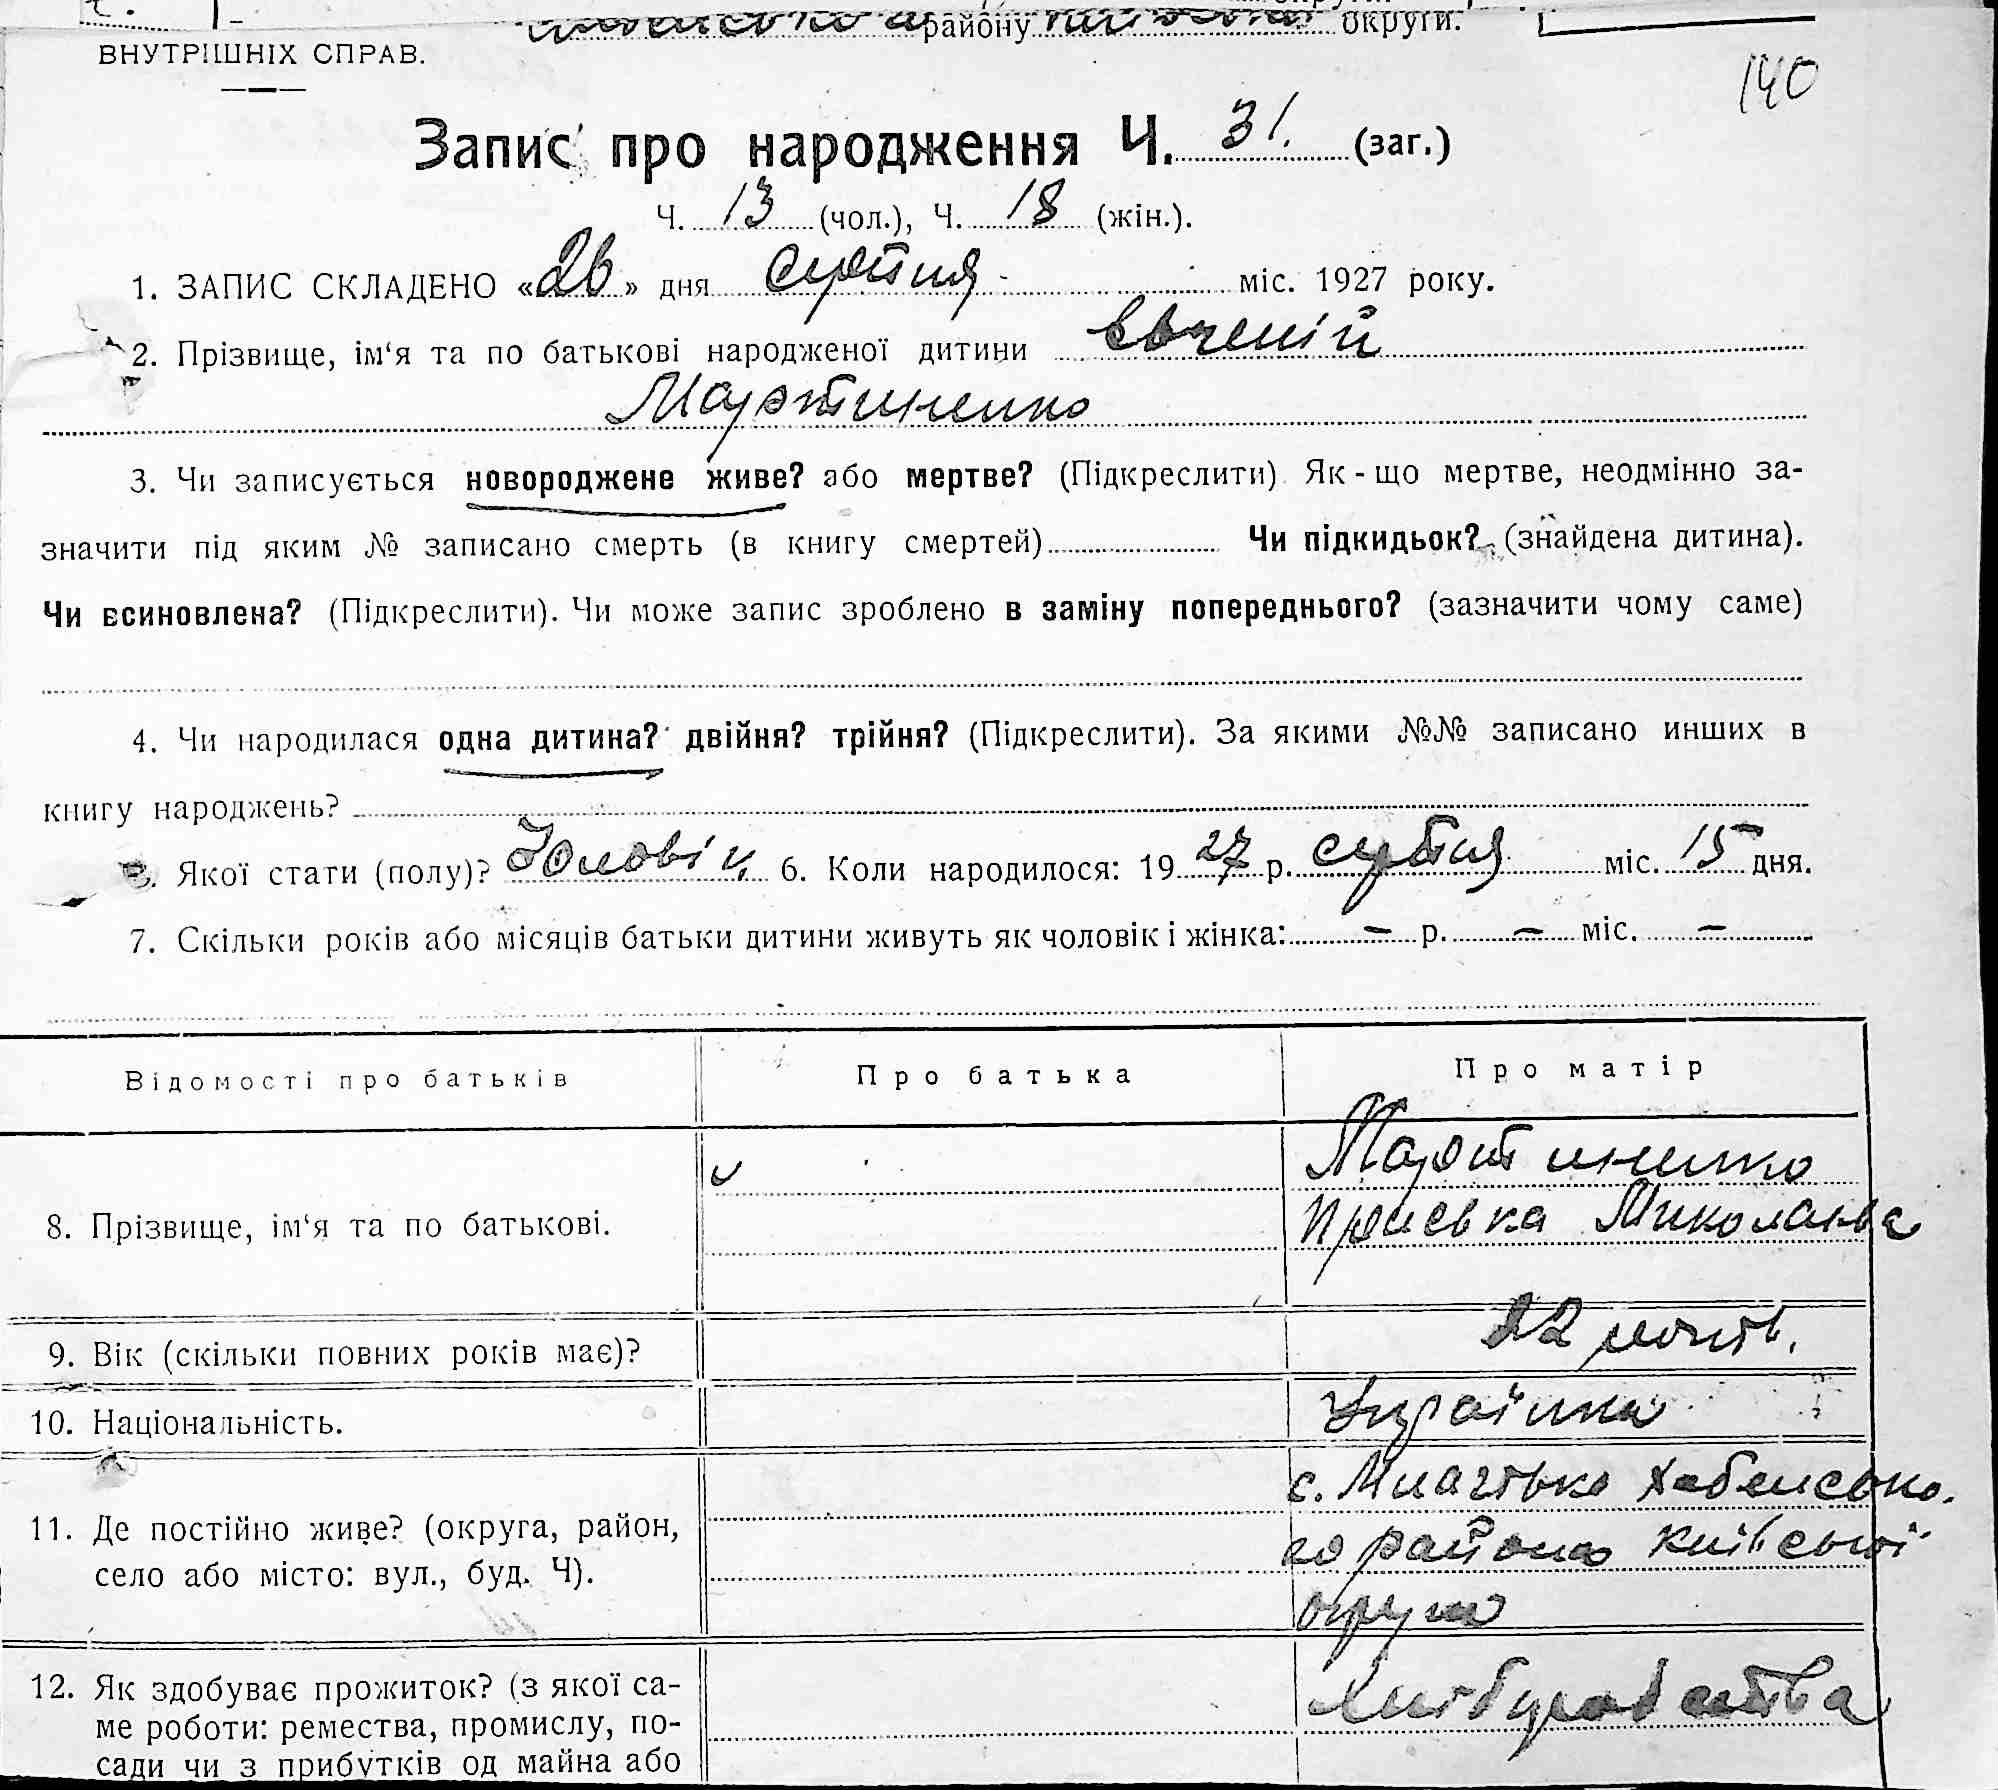 району округи.
ВНУТРІШНІХ СПРАВ.
140
Запис про народження Ч. 31. (заг.)
Ч. 13 (чол.), Ч. 18 (жін.).
1. ЗАПИС СКЛАДЕНО «26» дня серпня міс. 1927 року.
2. Прізвище, ім‘я та по батькові народженої дитини Євгеній
Мартиненко
3. Чи записується новороджене живе? або мертве? (Підкреслити) Як-що мертве, неодмінно за-
значити під яким № записано смерть (в книгу смертей) Чи підкидьок? (знайдена дитина).
Чи всиновлена? (Підкреслити). Чи може запис зроблено в заміну попереднього? (зазначити чому саме)
4. Чи народилася одна дитина? двійня? трійня? (Підкреслити). За якими №№ записано инших в
книгу народжень?
5. Якої стати (полу)? Чоловіч. 6. Коли народилося: 1927 р. серпня міс. 15 дня.
7. Скільки років або місяців батьки дитини живуть як чоловік і жінка: — р. — міс. —
Відомості про батьків Про батька Про матір
Мартиненко
8. Прізвище, ім‘я та по батькові. Миколаєва
9. Вік (скільки повних років має)? 22
10. Національність. Українка
с. Хабенсько-
11. Де постійно живе? (округа, район, го району Київської
село або місто: вул., буд. Ч). округи
12. Як здобуває прожиток? (з якої са-
ме роботи: ремества, промислу, по-
сади чи з прибутків од майна або